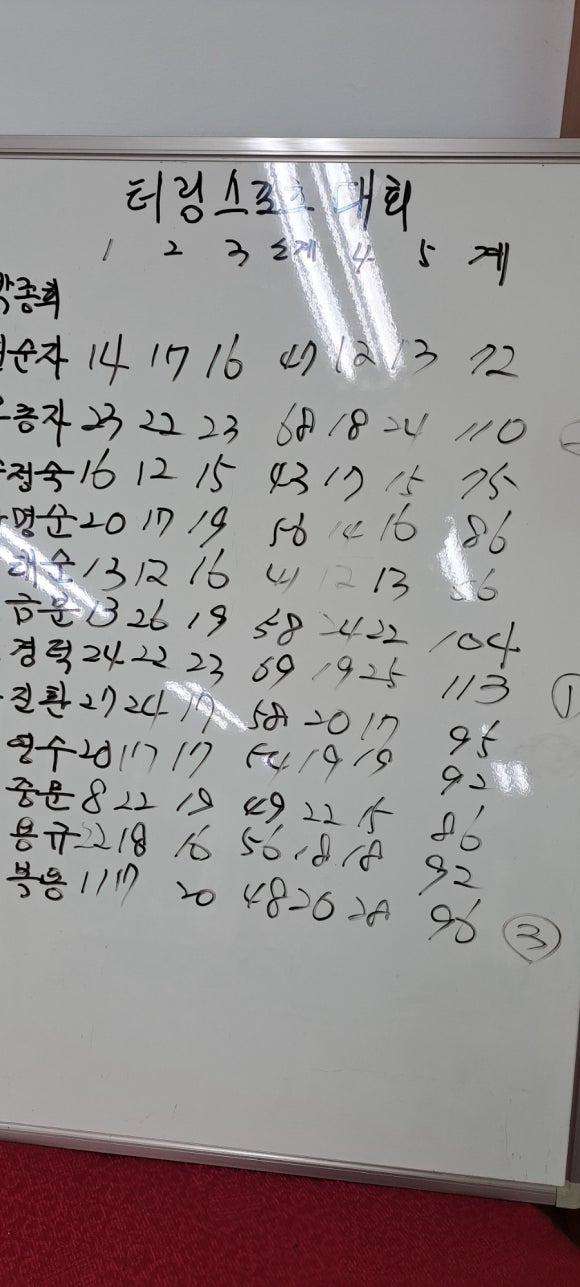 터링스포츠 대회
1 2 3 소계 4 5 계
박종희
순자 14 17 16 47 12 13 72
종자 23 22 23 68 18 24 110
정숙 16 12 15 43 17 15 75
명순 20 17 19 56 14 16 86
태순 13 12 16 41 12 13
금문 13 26 19 58 24 22 104
경력 24 22 23 69 19 25 113 ①
진환 27 24 17 58 20 17 95
연수 20 17 17 54 19 19 92
종문 8 22 19 49 22 15 86
용규 22 18 16 56 18 18 92
복용 11 17 20 48 20 28 96 ③